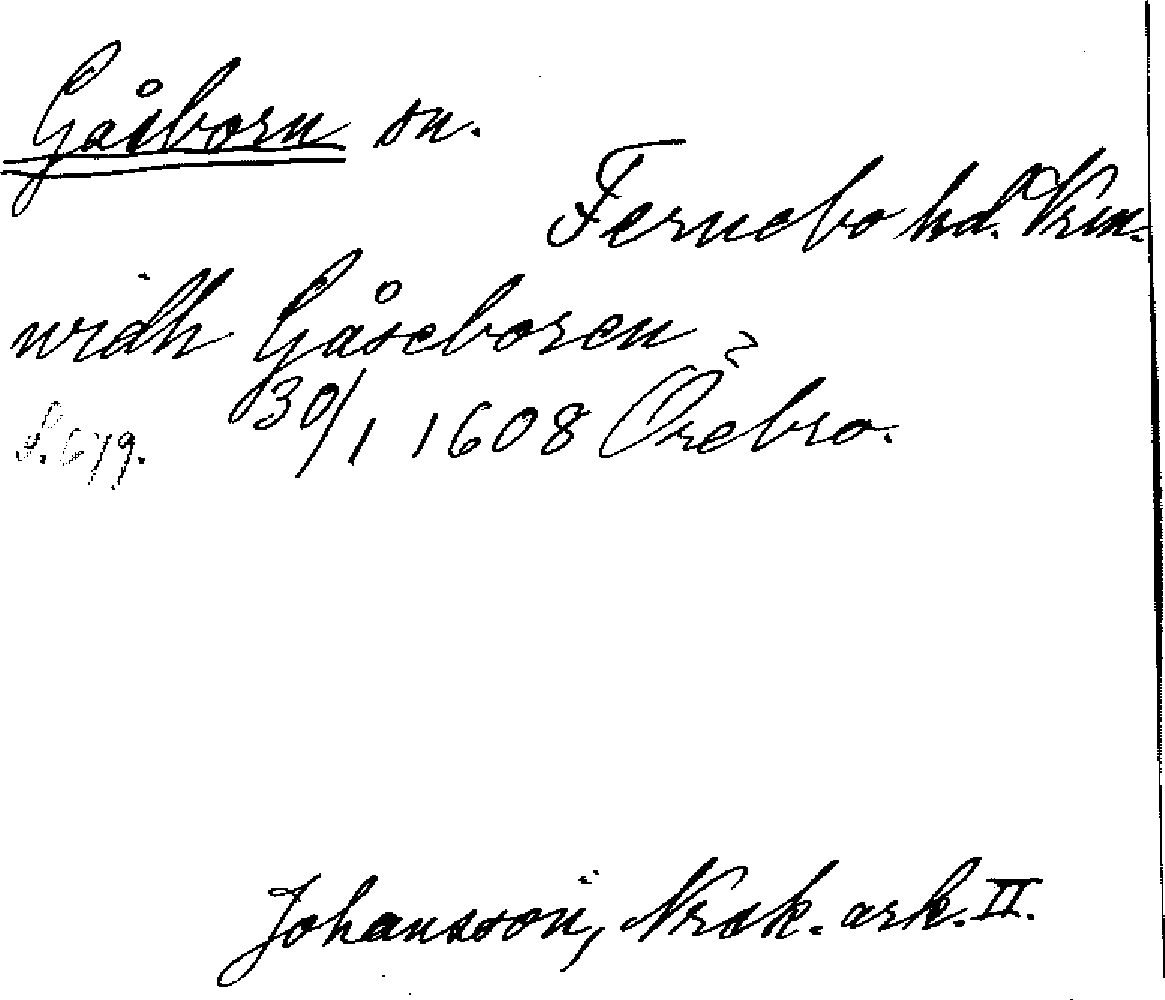 Gåsborn sn.
Fernebo hd. Vrm.
widh Gåseboren
30/1 1608 Örebro.
S. 679.
Johansson, Nrsk. ark. II.